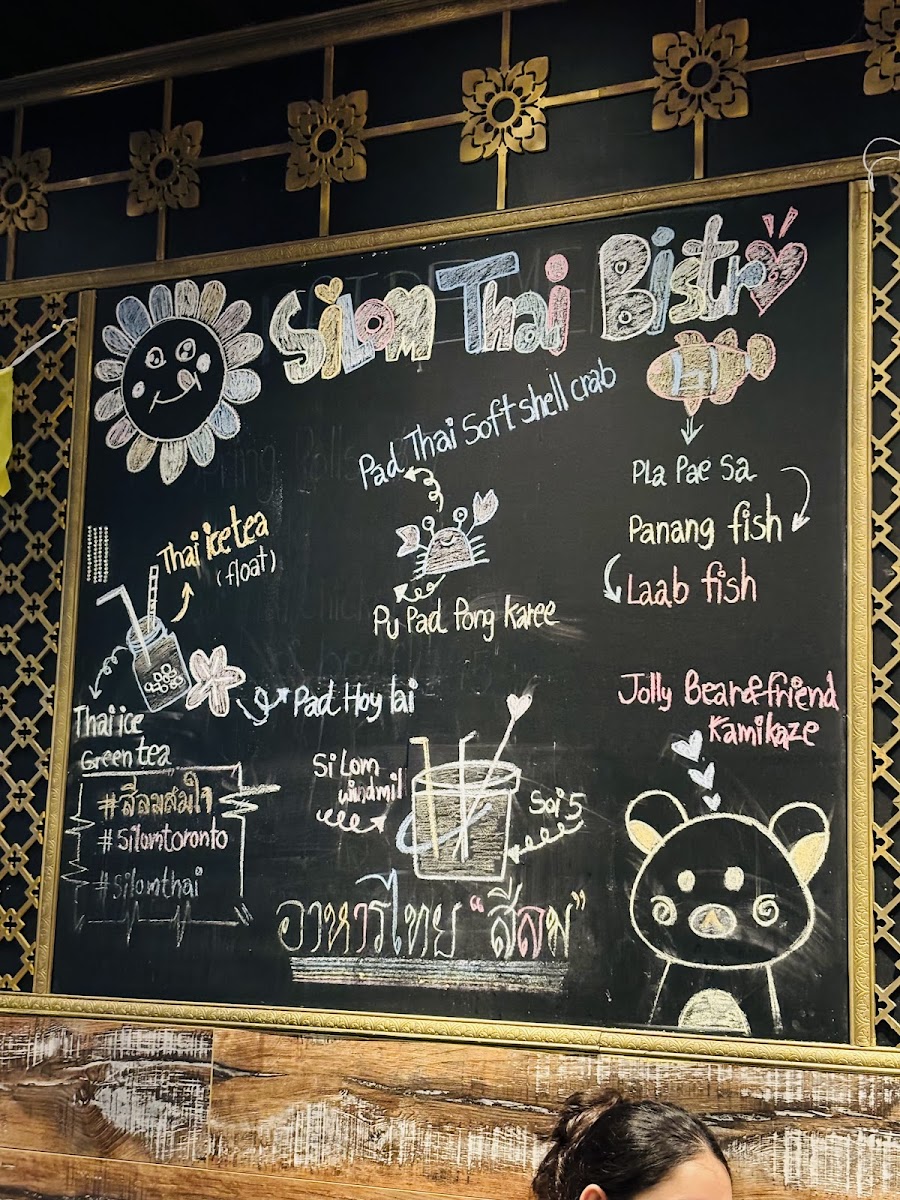 Silom Thai Bistro
Pad Thai Soft shell crab
Pla Pae Sa
Panang fish
Laab fish
Thai ice tea
(float)
Pu Pad Pong Karee
Thai ice
Green tea
Pad Hoy lai
Jolly Bear & friend
Kamikaze
Silom
windmil
Soi 5
#สีลมสมใจ
#Silomtoronto
#Silomthai
อาหารไทย "สีลม"